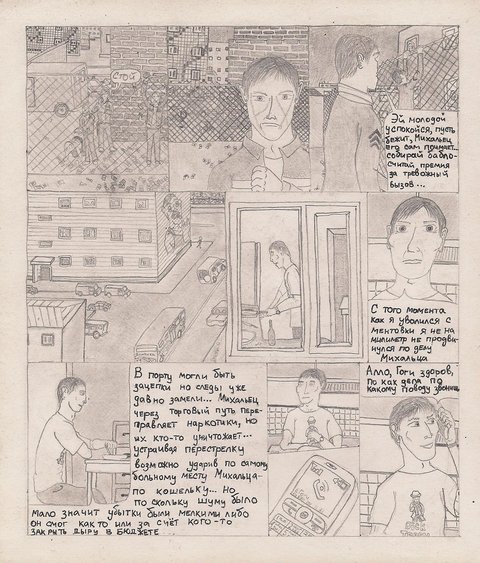 Стой
Эй молодой
успокойся, пусть
бежит, Михалыч
его сам поймает...
собирай бабло-
считай премия
за тревожный
вызов...
С того момента
как я уволился с
ментовки я не на
милиметр не продви-
нулся по делу
Михалыча
В порту могли быть
зацепки но следы уже
давно замели... Михалыч
через торговый путь пере-
правляет наркотики, но
их кто-то уничтожает...
устраивая перестрелку
возможно ударив по самому
больному месту Михалыча-
по кошельку... но
по скольку шуму было
мало значит убытки были мелкими либо
он смог как то или за счёт кого-то
закрыть дыру в бюджете
Алло, Гоги здоров,
По как дела по
какому поводу звонишь